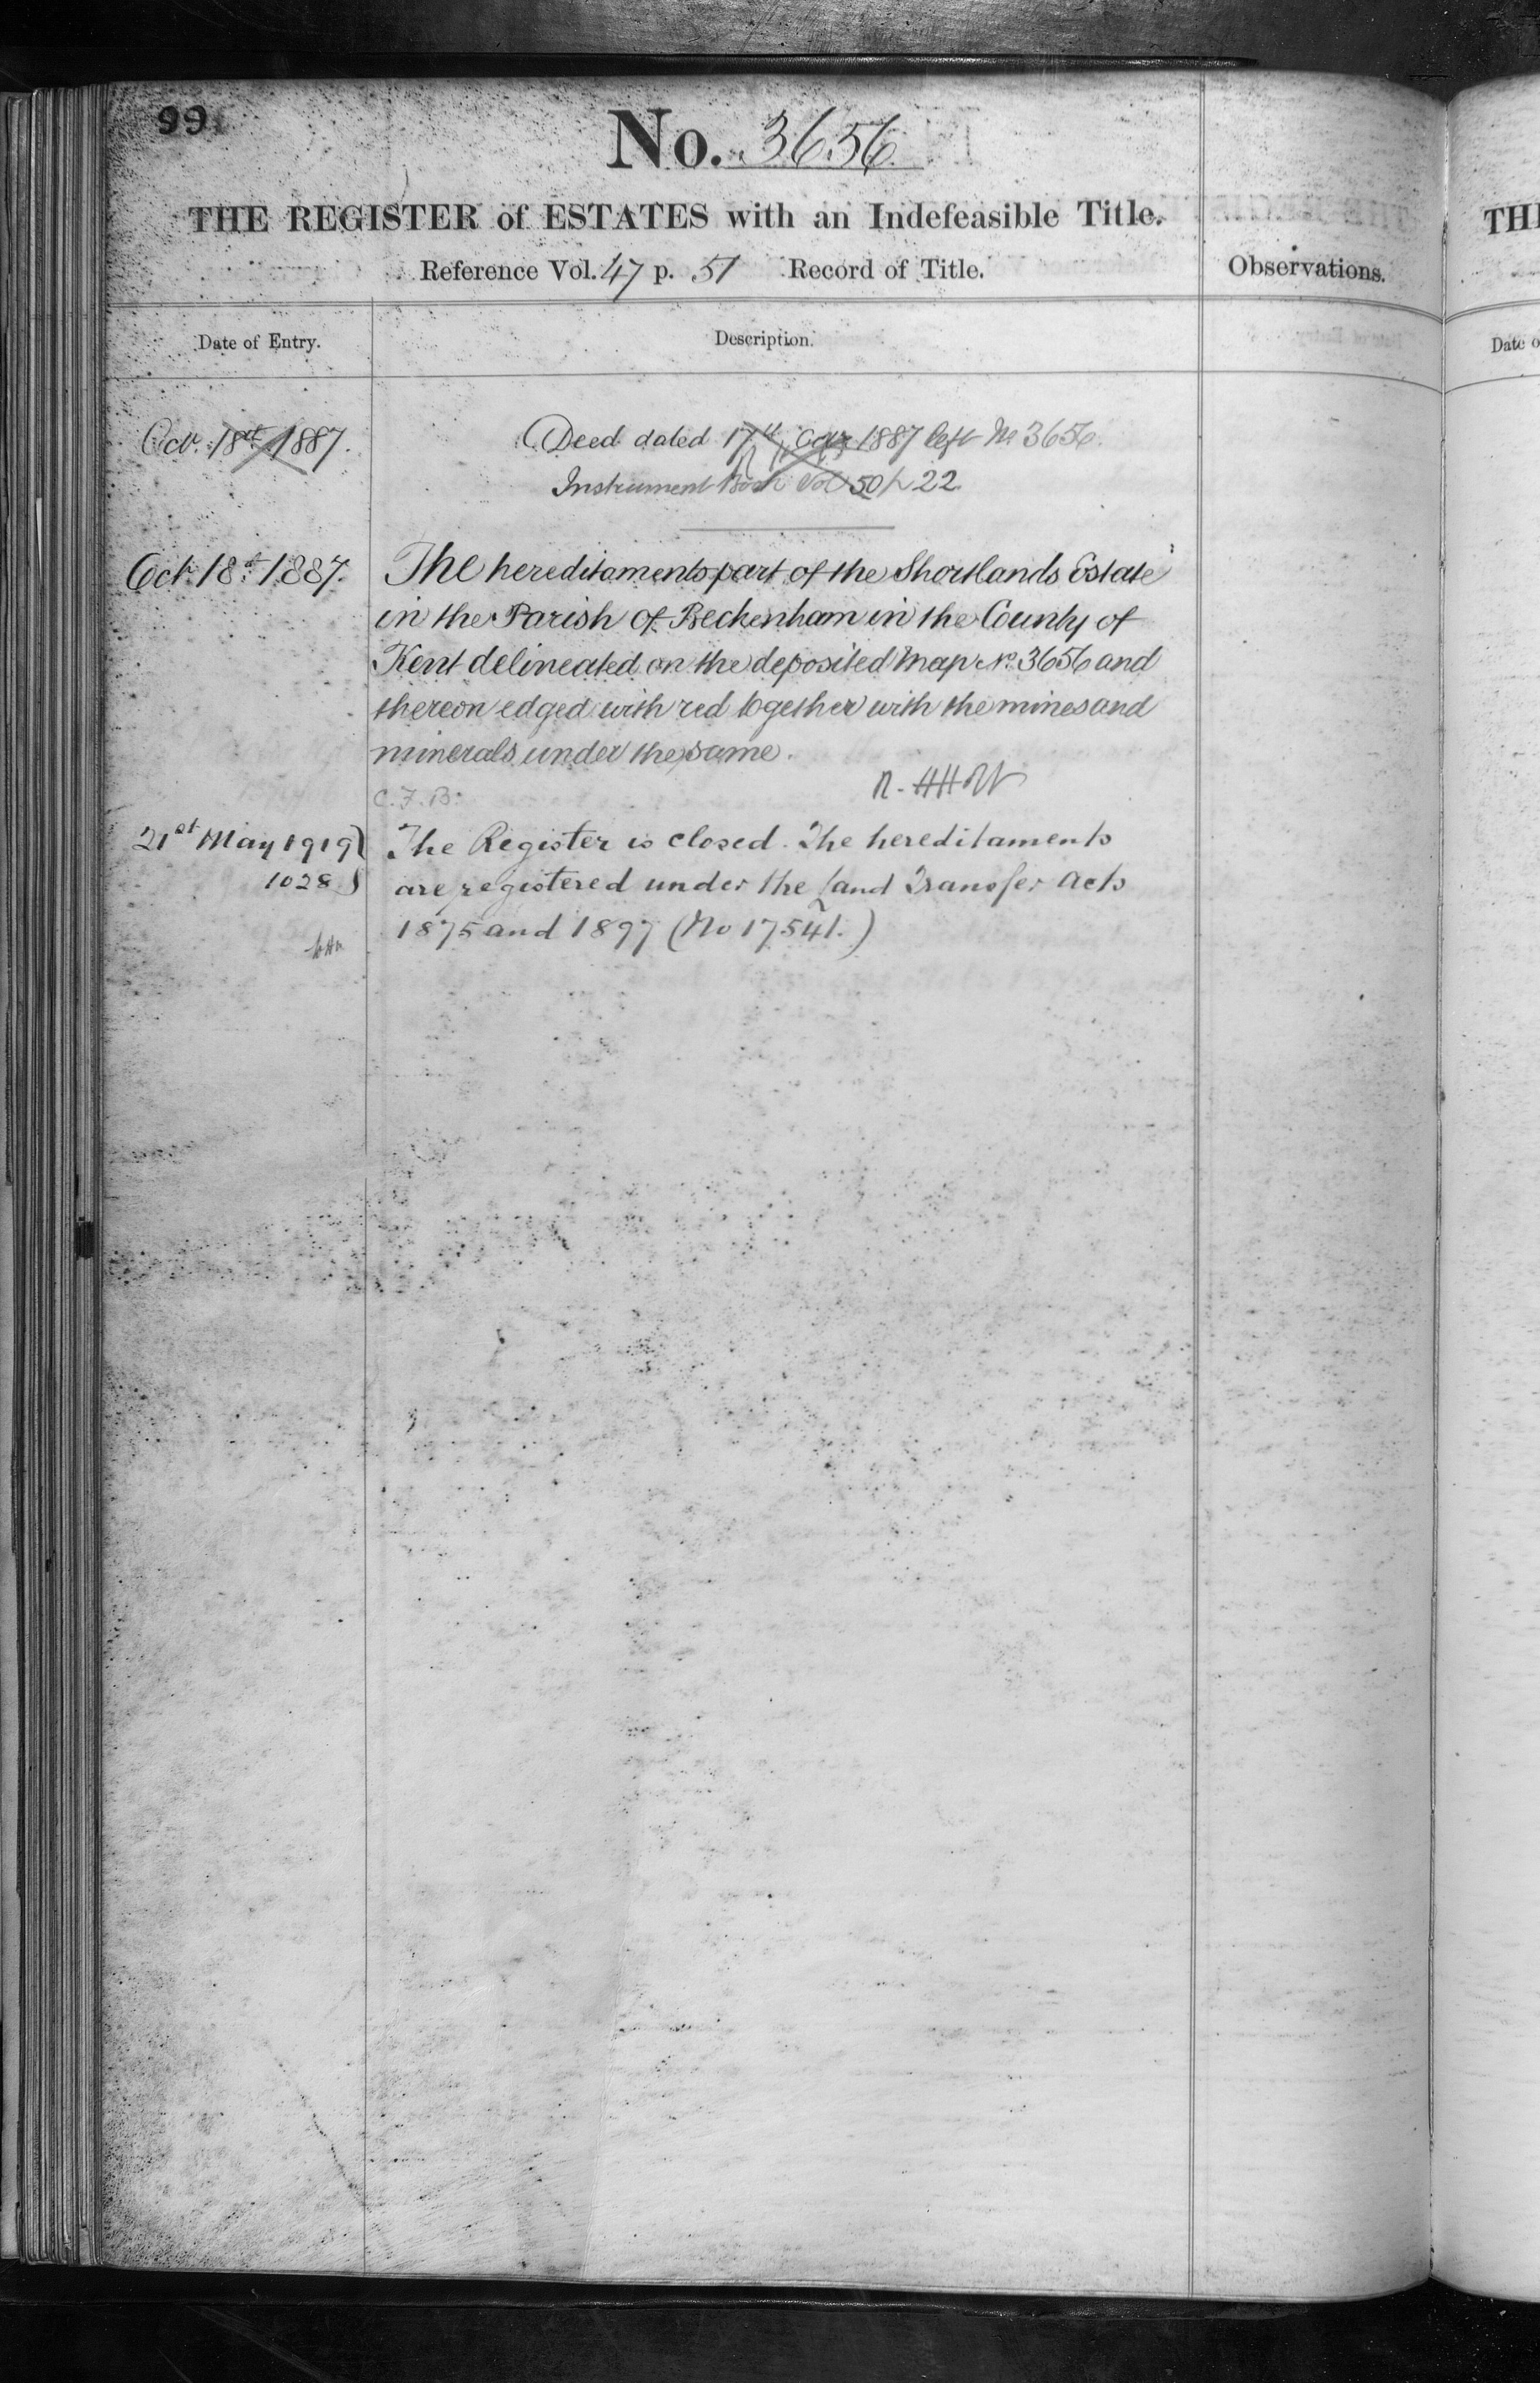 99
No. 3656
THE REGISTER of ESTATES with an Indefeasible Title.
Reference Vol. 47 p. 51 Record of Title.
Observations.
Date of Entry.
Description.
Octr. 18th 1887.
Deed dated 17th Octr 1887 left No 3656.
Instrument Book Vol 50 p 22
Octr. 18th 1887.
The hereditaments part of the Shortlands Estate
in the Parish of Beckenham in the County of
Kent delineated on the deposited Map No. 3656 and
thereon edged with red together with the mines and
minerals under the same.
C.F.B.
21st May 1919
1028
The Register is closed. The hereditaments
are registered under the Land Transfer Acts
1875 and 1897 (No 17541.)
TH
Date o